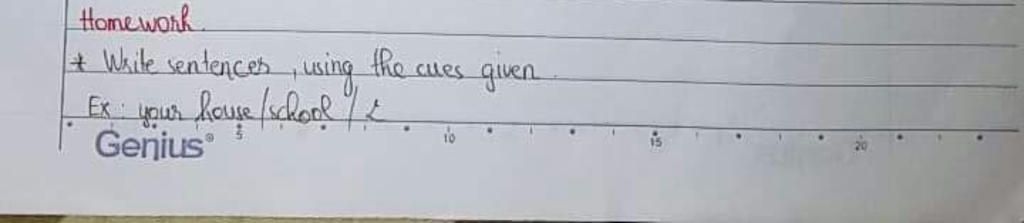 Homework.
* Write sentences, using the cues given.
Ex: your house/school/
Genius®
5 10 15 20